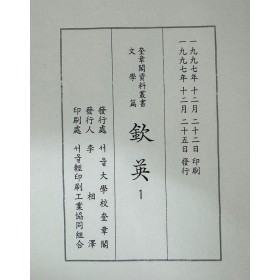 一九九七年 十二月 二十二日 印刷
一九九七年 十二月 二十五日 發行
奎章閣資料叢書
文學篇
欽英 1
發行處 서울大學校奎章閣
發行人 李相澤
印刷處 서울輕印刷工業協同組合